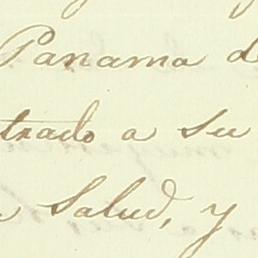 Panama d
trado a su
Salud, y